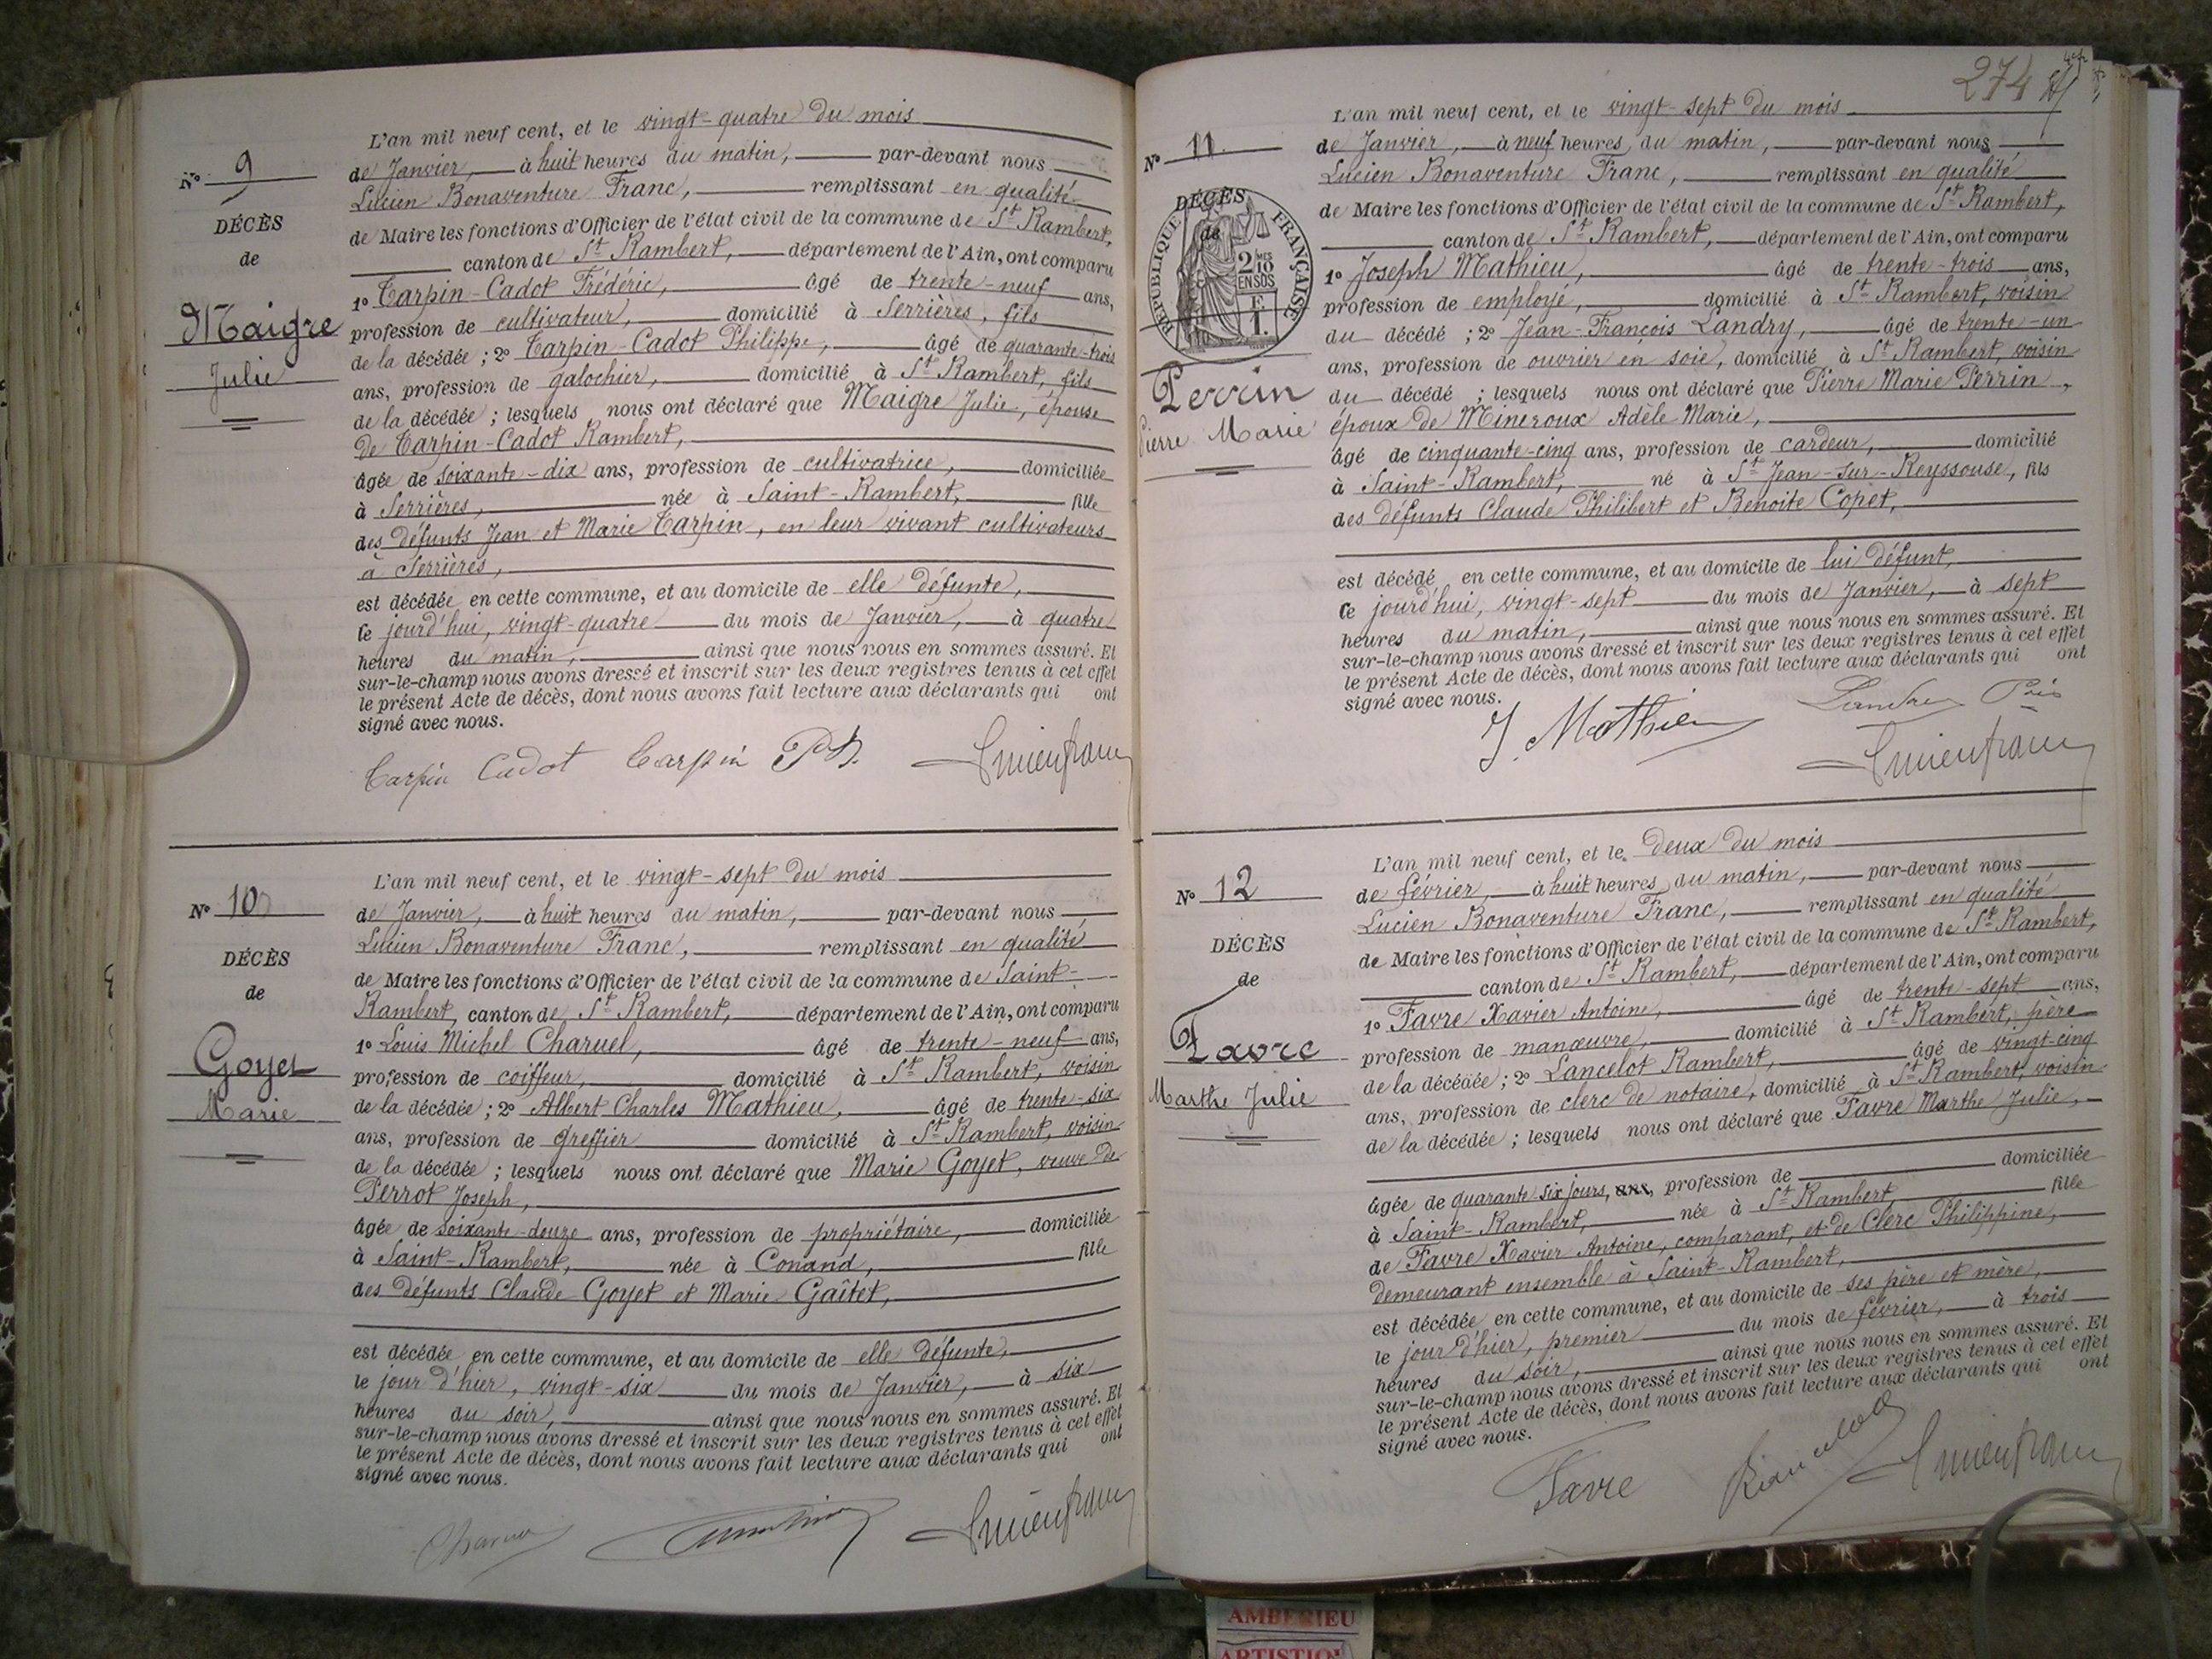 L'an mil neuf cent, et le vingt-quatre du mois
Nº 9
de Janvier, à huit heures du matin, par-devant nous
Lucien Bonaventure Franc, remplissant en qualité
DÉCÈS
de Maire les fonctions d'Officier de l'état civil de la commune de St Rambert,
de
canton de St Rambert, département de l'Ain, ont comparu
1º Tarpin-Cadot Frédéric, âgé de trente-neuf ans,
Maigre
profession de cultivateur, domicilié à Serrières, fils
de la décédée ; 2º Tarpin-Cadot Philippe, âgé de quarante-trois
Julie
ans, profession de galochier, domicilié à St Rambert, fils
de la décédée ; lesquels nous ont déclaré que Maigre Julie, épouse
de Tarpin-Cadot Rambert,
âgée de soixante-dix ans, profession de cultivatrice, domiciliée
à Serrières, née à Saint-Rambert, fille
des défunts Jean et Marie Tarpin, en leur vivant cultivateurs
à Serrières,
est décédée en cette commune, et au domicile de elle défunte,
le jourd'hui, vingt-quatre du mois de Janvier, à quatre
heures du matin, ainsi que nous nous en sommes assuré. Et
sur-le-champ nous avons dressé et inscrit sur les deux registres tenus à cet effet
le présent Acte de décès, dont nous avons fait lecture aux déclarants qui ont
signé avec nous.
Tarpin Cadot Tarpin Ph. Lucien franc
L'an mil neuf cent, et le vingt-sept du mois
Nº 10
de Janvier, à huit heures du matin, par-devant nous
Lucien Bonaventure Franc, remplissant en qualité
DÉCÈS
de Maire les fonctions d'Officier de l'état civil de la commune de Saint-
de
Rambert, canton de St Rambert, département de l'Ain, ont comparu
1º Louis Michel Charuel, âgé de trente-neuf ans,
Goyet
profession de coiffeur, domicilié à St Rambert, voisin
de la décédée ; 2º Albert Charles Mathieu, âgé de trente-six
Marie
ans, profession de greffier domicilié à St Rambert, voisin
de la décédée ; lesquels nous ont déclaré que Marie Goyet, veuve de
Perrot Joseph,
âgée de soixante-douze ans, profession de propriétaire, domiciliée
à Saint-Rambert, née à Conand, fille
des défunts Claude Goyet et Marie Gaîtet,
est décédée en cette commune, et au domicile de elle défunte,
le jour d'hier, vingt-six du mois de Janvier, à six
heures du soir, ainsi que nous nous en sommes assuré. Et
sur-le-champ nous avons dressé et inscrit sur les deux registres tenus à cet effet
le présent Acte de décès, dont nous avons fait lecture aux déclarants qui ont
signé avec nous.
Lucien franc
274
L'an mil neuf cent, et le vingt-sept du mois
Nº 11
de Janvier, à neuf heures du matin, par-devant nous
Lucien Bonaventure Franc, remplissant en qualité
DÉCÈS
de Maire les fonctions d'Officier de l'état civil de la commune de St Rambert,
de
RÉPUBLIQUE FRANÇAISE
2 MES
10
EN SUS
canton de St Rambert, département de l'Ain, ont comparu
1º Joseph Mathieu, âgé de trente-trois ans,
profession de employé, domicilié à St Rambert, voisin
du décédé ; 2º Jean-François Landry, âgé de trente-un
ans, profession de ouvrier en soie, domicilié à St Rambert, voisin
Perrin
du décédé ; lesquels nous ont déclaré que Pierre Marie Perrin,
Pierre Marie
époux de Mineroux Adèle Marie,
âgé de cinquante-cinq ans, profession de cardeur, domicilié
à Saint-Rambert, né à St Jean-sur-Reyssouse, fils
des défunts Claude Philibert et Benoite Copet,
est décédé en cette commune, et au domicile de lui défunt,
le jourd'hui, vingt-sept du mois de Janvier, à sept
heures du matin, ainsi que nous nous en sommes assuré. Et
sur-le-champ nous avons dressé et inscrit sur les deux registres tenus à cet effet
le présent Acte de décès, dont nous avons fait lecture aux déclarants qui ont
signé avec nous.
J. Mathieu
Lucien franc
L'an mil neuf cent, et le deux du mois
Nº 12
de février, à huit heures du matin, par-devant nous
Lucien Bonaventure Franc, remplissant en qualité
DÉCÈS
de Maire les fonctions d'Officier de l'état civil de la commune de St Rambert,
de
canton de St Rambert, département de l'Ain, ont comparu
1º Favre Xavier Antoine, âgé de trente-sept ans,
Favre
profession de manœuvre, domicilié à St Rambert, père
de la décédée ; 2º Lancelot Rambert, âgé de vingt-cinq
Marthe Julie
ans, profession de clerc de notaire, domicilié à St Rambert, voisin
de la décédée ; lesquels nous ont déclaré que Favre Marthe Julie,
âgée de quarante six jours, ans, profession de domiciliée
à Saint-Rambert, née à St Rambert, fille
de Favre Xavier Antoine, comparant, et de Clerc Philippine,
demeurant ensemble à Saint-Rambert,
est décédée en cette commune, et au domicile de ses père et mère,
le jour d'hier, premier du mois de février, à trois
heures du soir, ainsi que nous nous en sommes assuré. Et
sur-le-champ nous avons dressé et inscrit sur les deux registres tenus à cet effet
le présent Acte de décès, dont nous avons fait lecture aux déclarants qui ont
signé avec nous.
Favre Lucien franc
AMBERIEU